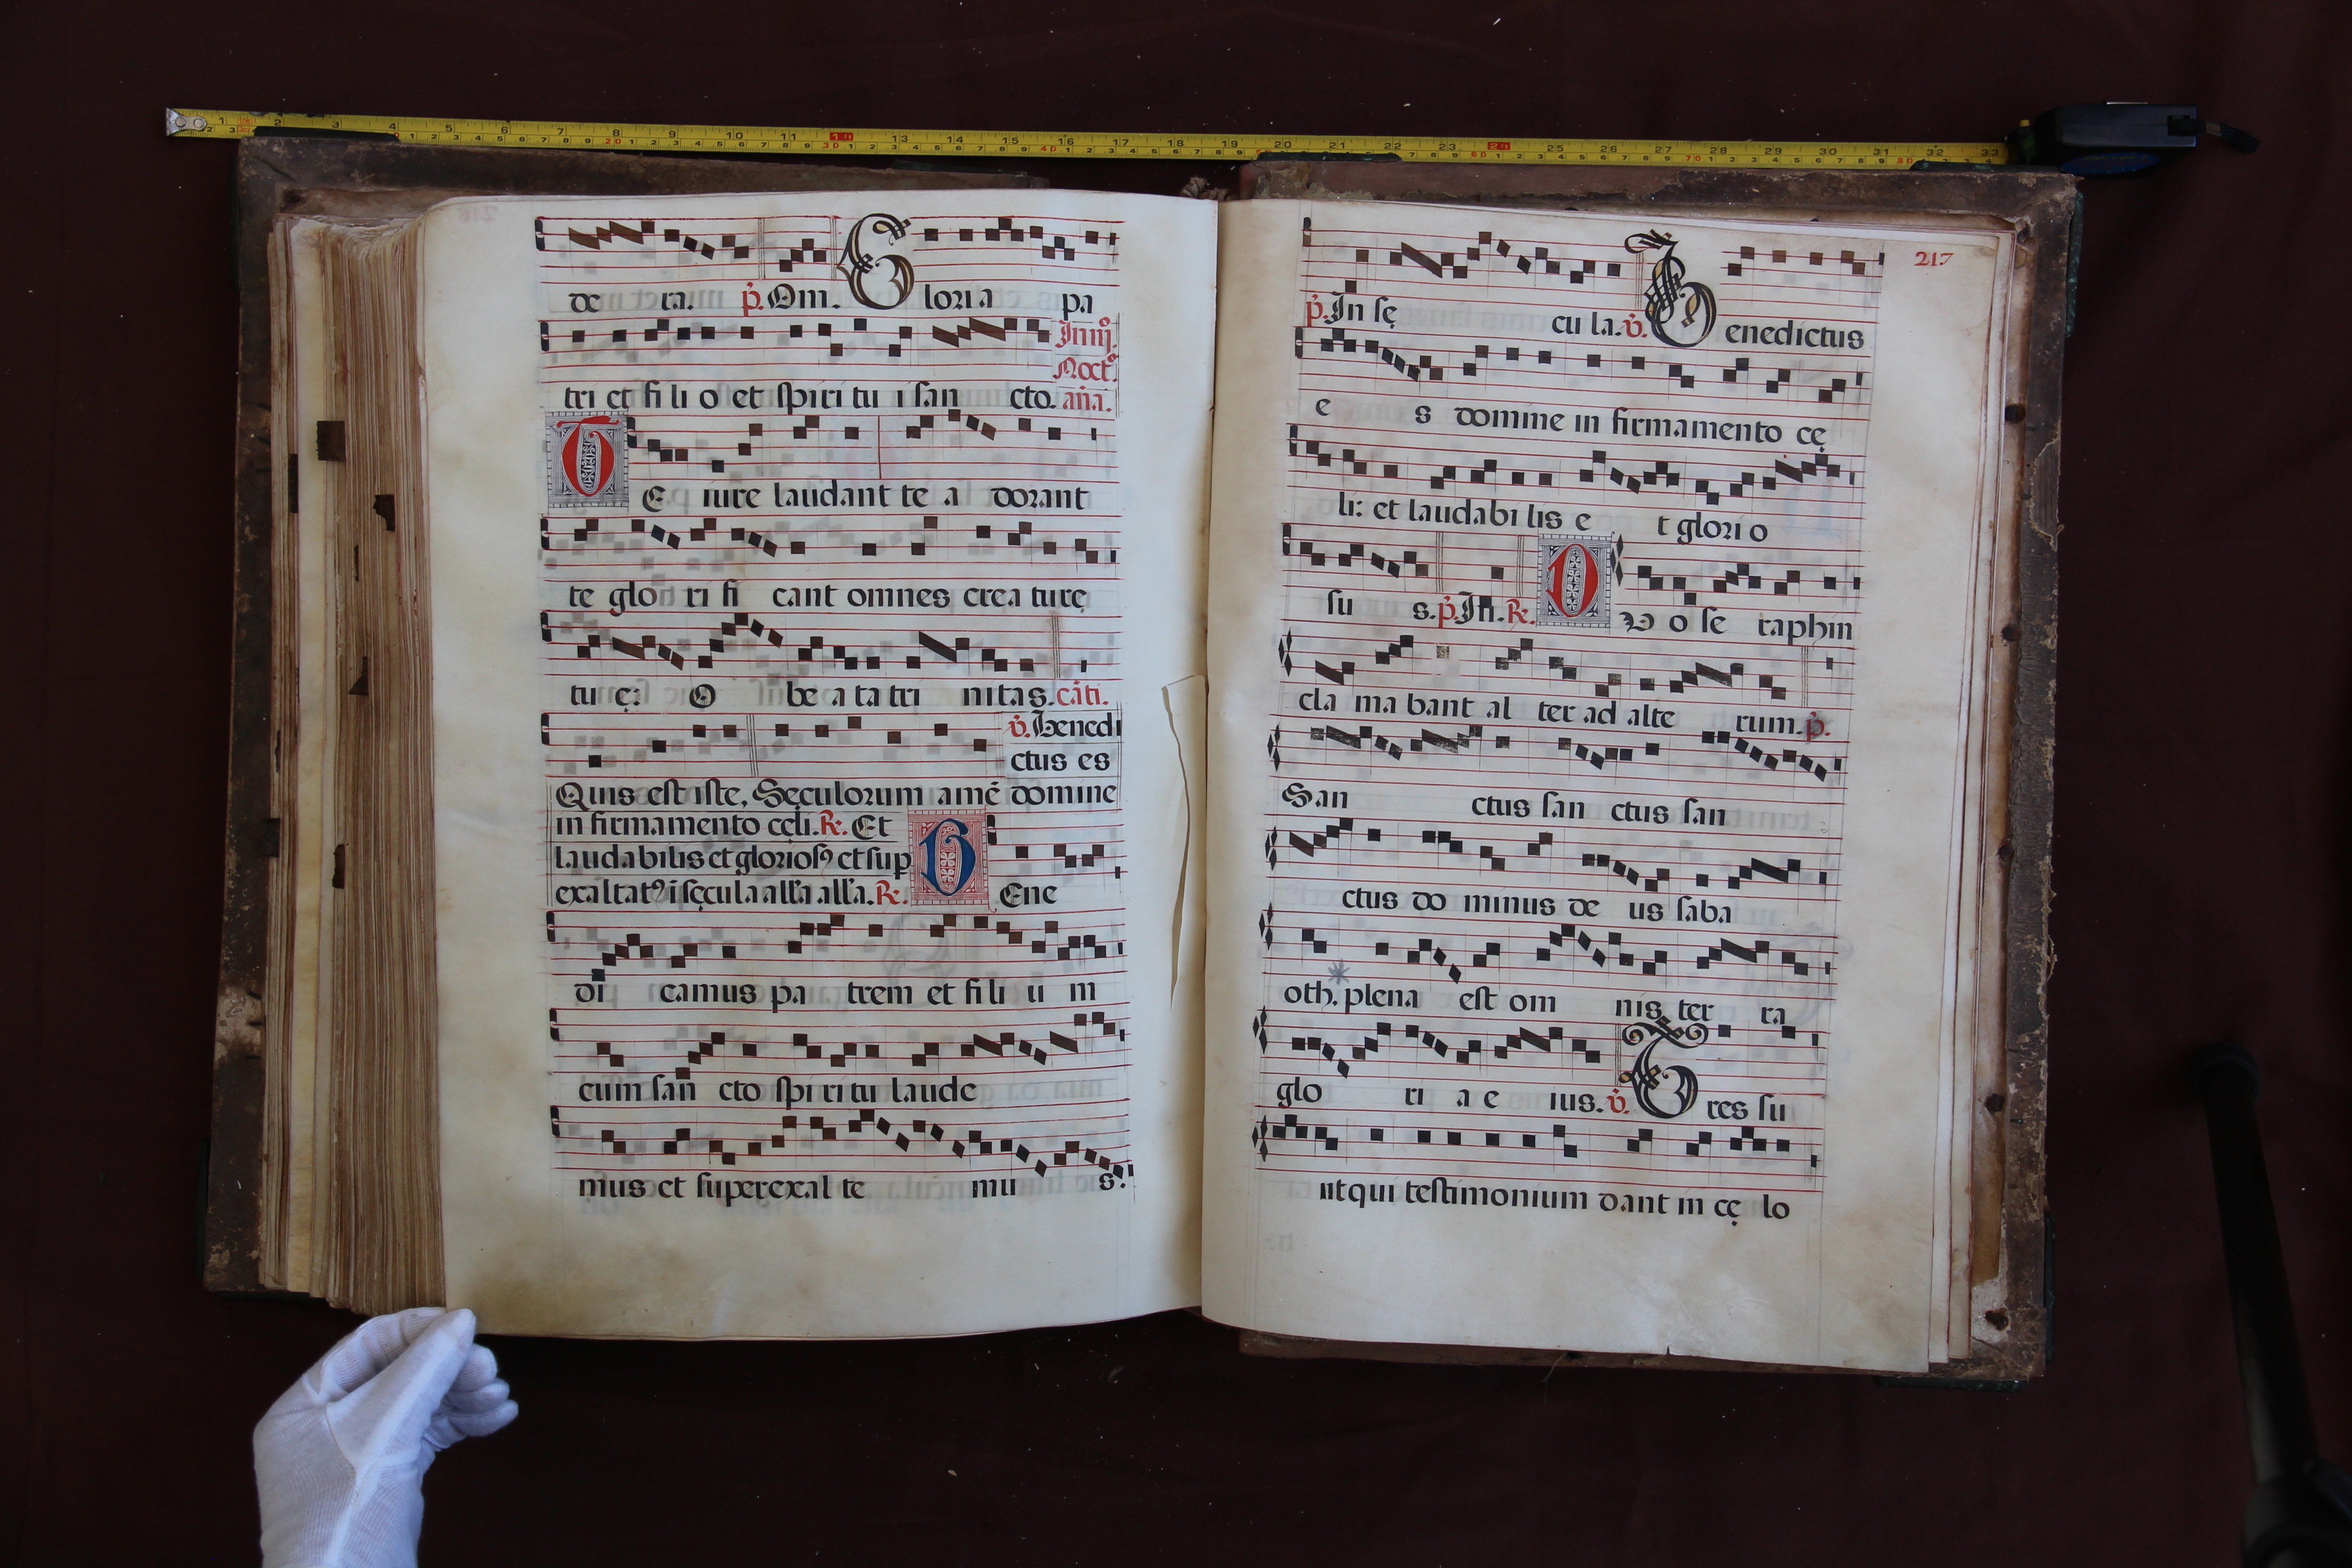 de ra. p̄. Om. Gloria pa
tri et fi li o et spiri tu i san cto. In iij. Noct.º an̄a.
TE iure laudant te a dorant
te glo ri fi cant omnes crea turę
tu ę: O be a ta tri nitas. cāti.
v̄. Benedi
ctus es
Quis est iste, Sęculorum amē domine
in firmamento cęli. R. Et
laudabilis et gloriosꝰ et sup
exaltatꝰ i sęcula all'a all'a. R. BEne
di camus pa trem et fi li u m
cum san cto spi ri tu laude
mus et superexal te mu s:
217
p̄. In sę cu la. v̄. Benedictus
e s domine in firmamento cę
li: et laudabi lis e t glori o
su s. p̄. In. R. DVo se raphin
cla ma bant al ter ad alte rum. p̄.
San ctus san ctus san
ctus do minus de us saba
oth, plena est om nis ter ra
glo ri a e ius. v̄. Tres su
nt qui testimonium dant in cę lo